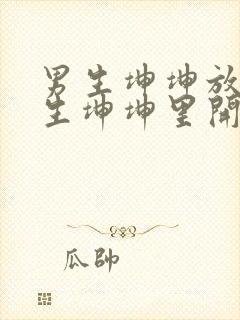 男生坤坤放
生坤坤里開
瓜帥